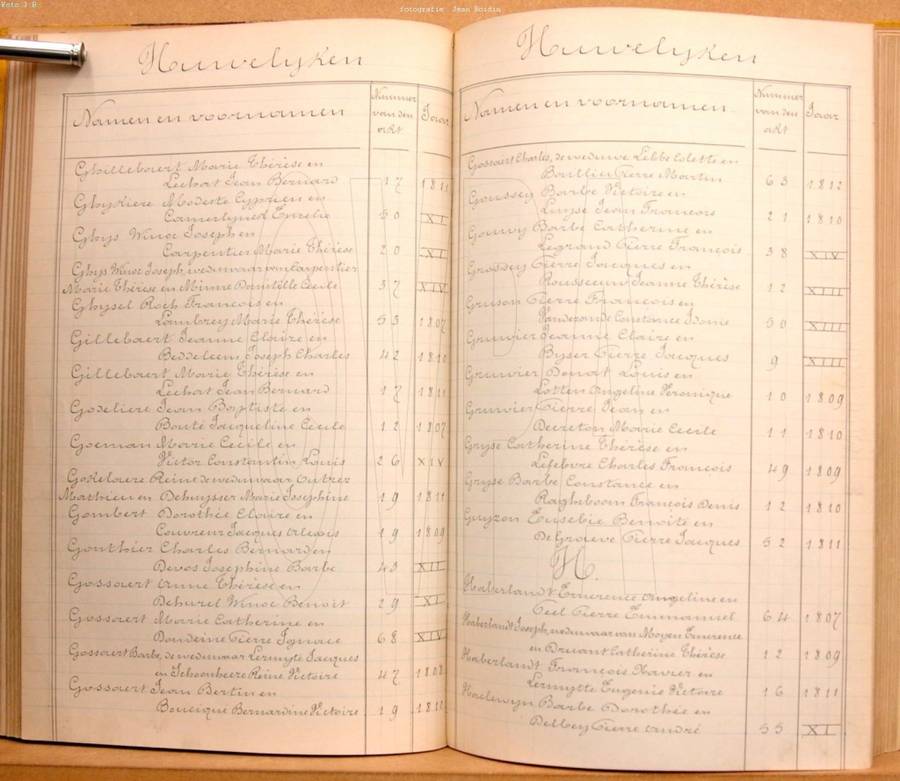 Foto 3 B
fotografie Jean Boidin
Huwelyken
Namen en voornamen Nummer van den akt Jaar
Ghillebaert Marie Thérèse en
Lechart Jean Bernard 17 1811
Modeste Cyprien en
50 XI
Ghys Winoc Joseph en
Carpentier Marie Thérèse 20 XI
Ghys Winoc Joseph, weduwaar van Carpentier
Marie Thérèse en Minne Domitille Cecile 37 XIV
Ghysel Roch François en
Lambrey Marie Thérèse 53 1807
Gillebaert Jeanne Claire en
Joseph Charles 42 1810
Gillebaert Marie Thérèse en
Lechart Jean Bernard 17 1811
Godeliere Jean Baptiste en
Bouté Jacqueline Cecile 12 1807
Goeman Marie Cécile en
Victor Constantin Louis 26 XIV
Reine weduwaar
Mathieu en Dehuysser Marie Josephine 19 1811
Gombert Dorothée Claire en
Couvreur Jacques 19 1809
Gonthier Charles Bernard en
Devos Josephine Barbe 43 XII
Gossaert Anne Thérèse en
Winoc Benoit 29 XI
Gossaert Marie Catherine en
Pierre Ignace 68 XIV
Gossaert Barbe, de weduwaar Lermyte Jacques
en Schoonheere Reine Victoire 47
Gossaert Jean Bertin en
Boucique Bernardine Victoire 19
Huwelyken
Namen en voornamen Nummer van den akt Jaar
Gossaert Charles, de weduwe Lebbe Colette en
Pierre Martin 63 1812
Goussey Barbe Victoire en
Luyse Jean François 21 1810
Gouwy Barbe Catherine en
Legrand Pierre François 38 XIV
Pierre Jacques en
Rousseeuw Jeanne Thérèse 12 XIII
Gruson Pierre François en
Vanderande Constance 50 XIII
Gruwier Jeanne Claire en
Byser Pierre Jacques 9 XIII
Gruwier Donat Louis en
Lotten Angeline Veronique 10 1809
Gruwier Pierre Jean en
Decreton Marie Cecile 11 1810
Gryse Catherine Thérèse en
Lefebvre Charles François 49 1809
Gryse Barbe Constance en
Ragheboom François Denis 12 1810
Guyzon Eusebie Benoite en
DeGraeve Pierre Jacques 52 1811
H.
Haberlandt Emerence Angeline en
Pierre Emmanuel 64 1807
Haberlandt Joseph, weduwaar van Moyen Emerence
en Druant Catherine Thérèse 12 1809
Haberlandt François Xavier en
Lermytte Eugenie Victoire 16 1811
Haelewyn Barbe Dorothée en
Delbey Pierre André 55 XI